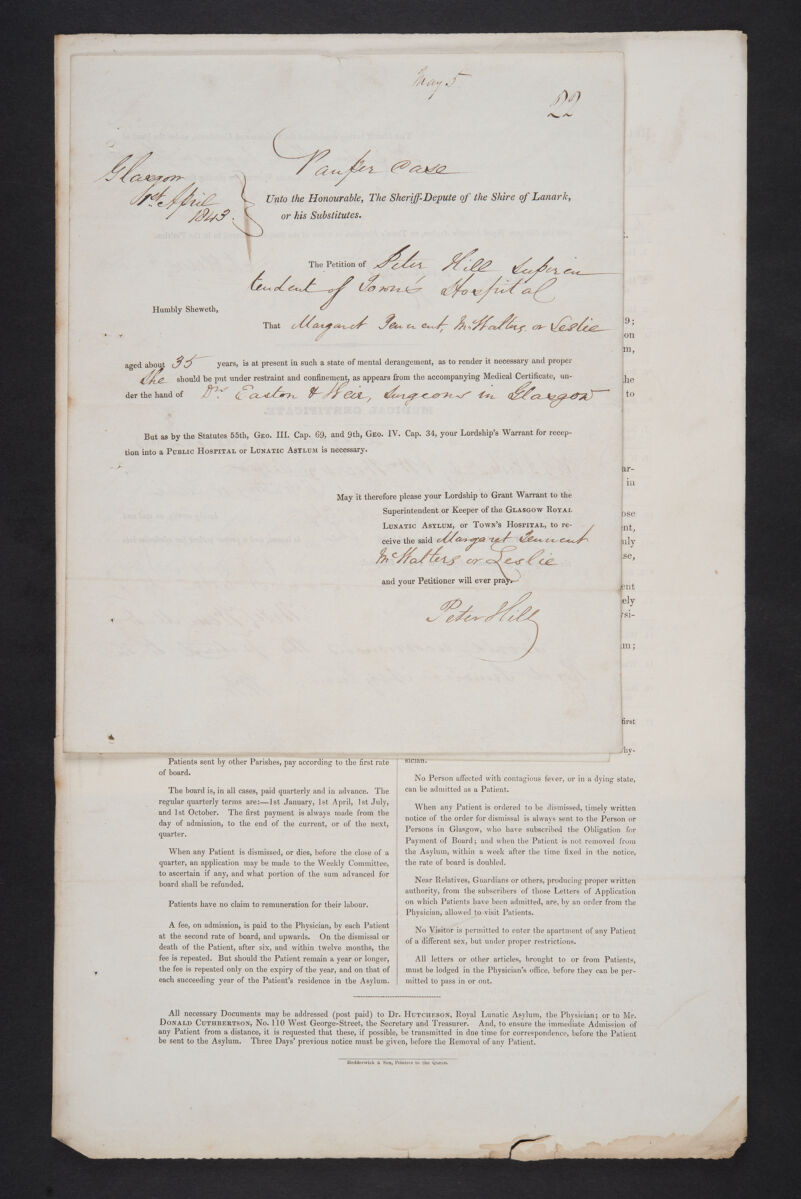 May 5
22
Pauper Case
Glasgow
1st April
1843.
Unto the Honourable, The Sheriff-Depute of the Shire of Lanark,
or his Substitutes.
The Petition of Peter Hill Superin
tendent of Town's Hospital
Humbly Sheweth,
That Margaret Tennent, McWalters or Leslie
aged about 35 years, is at present in such a state of mental derangement, as to render it necessary and proper
She should be put under restraint and confinement, as appears from the accompanying Medical Certificate, un-
der the hand of Drs Easton & Weir, Surgeons in Glasgow
But as by the Statutes 55th, Geo. III. Cap. 69, and 9th, Geo. IV. Cap. 34, your Lordship's Warrant for recep-
tion into a Public Hospital or Lunatic Asylum is necessary.
May it therefore please your Lordship to Grant Warrant to the
Superintendent or Keeper of the Glasgow Royal
Lunatic Asylum, or Town's Hospital, to re-
ceive the said Margaret Tennent
McWalters or Leslie
and your Petitioner will ever pray.
Peter Hill
9;
on
m,
he
to
ar-
in
ose
nt,
uly
se,
ent
ely
ysi-
um;
first
hy-
Patients sent by other Parishes, pay according to the first rate
of board.
The board is, in all cases, paid quarterly and in advance. The
regular quarterly terms are:—1st January, 1st April, 1st July,
and 1st October. The first payment is always made from the
day of admission, to the end of the current, or of the next,
quarter.
When any Patient is dismissed, or dies, before the close of a
quarter, an application may be made to the Weekly Committee,
to ascertain if any, and what portion of the sum advanced for
board shall be refunded.
Patients have no claim to remuneration for their labour.
A fee, on admission, is paid to the Physician, by each Patient
at the second rate of board, and upwards. On the dismissal or
death of the Patient, after six, and within twelve months, the
fee is repeated. But should the Patient remain a year or longer,
the fee is repeated only on the expiry of the year, and on that of
each succeeding year of the Patient's residence in the Asylum.
sician.
No Person affected with contagious fever, or in a dying state,
can be admitted as a Patient.
When any Patient is ordered to be dismissed, timely written
notice of the order for dismissal is always sent to the Person or
Persons in Glasgow, who have subscribed the Obligation for
Payment of Board; and when the Patient is not removed from
the Asylum, within a week after the time fixed in the notice,
the rate of board is doubled.
Near Relatives, Guardians or others, producing proper written
authority, from the subscribers of those Letters of Application
on which Patients have been admitted, are, by an order from the
Physician, allowed to visit Patients.
No Visitor is permitted to enter the apartment of any Patient
of a different sex, but under proper restrictions.
All letters or other articles, brought to or from Patients,
must be lodged in the Physician's office, before they can be per-
mitted to pass in or out.
All necessary Documents may be addressed (post paid) to Dr. Hutcheson, Royal Lunatic Asylum, the Physician; or to Mr.
Donald Cuthbertson, No. 110 West George-Street, the Secretary and Treasurer. And, to ensure the immediate Admission of
any Patient from a distance, it is requested that these, if possible, be transmitted in due time for correspondence, before the Patient
be sent to the Asylum. Three Days' previous notice must be given, before the Removal of any Patient.
Hedderwick & Son, Printers to the Queen.